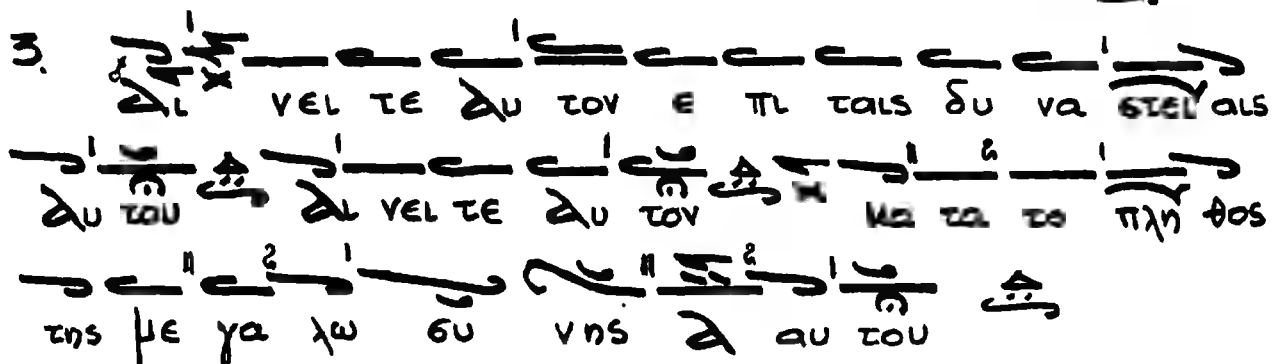 3. Αι νει τε αυ τον ε πι ταις δυ να στει αις
αυ του Αι νει τε αυ τον κα τα το πλη θος
της με γα λω συ νης α αυ του